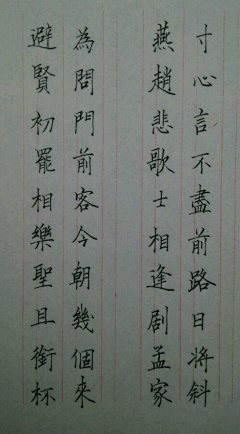 寸心言不盡前路日將斜
燕趙悲歌士相逢劇孟家
為問門前客今朝幾個來
避賢初罷相樂聖且銜杯